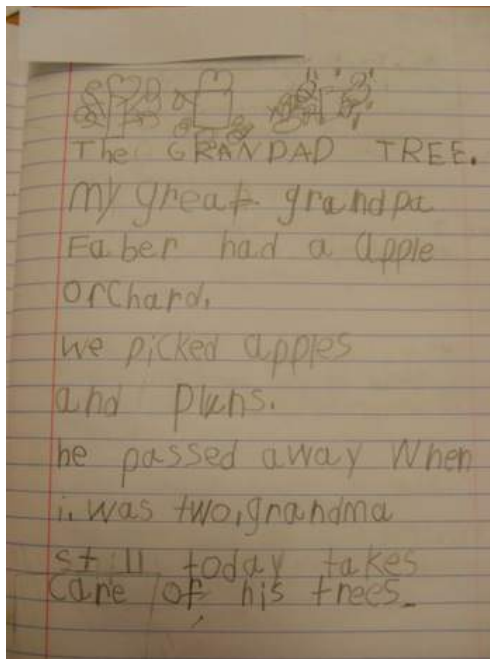 The GRANDAD TREE.
my great grandpa
Faber had a apple
orchard.
we picked apples
and pluns.
he passed away When
i. was two, grandma
still today takes
care of his trees.